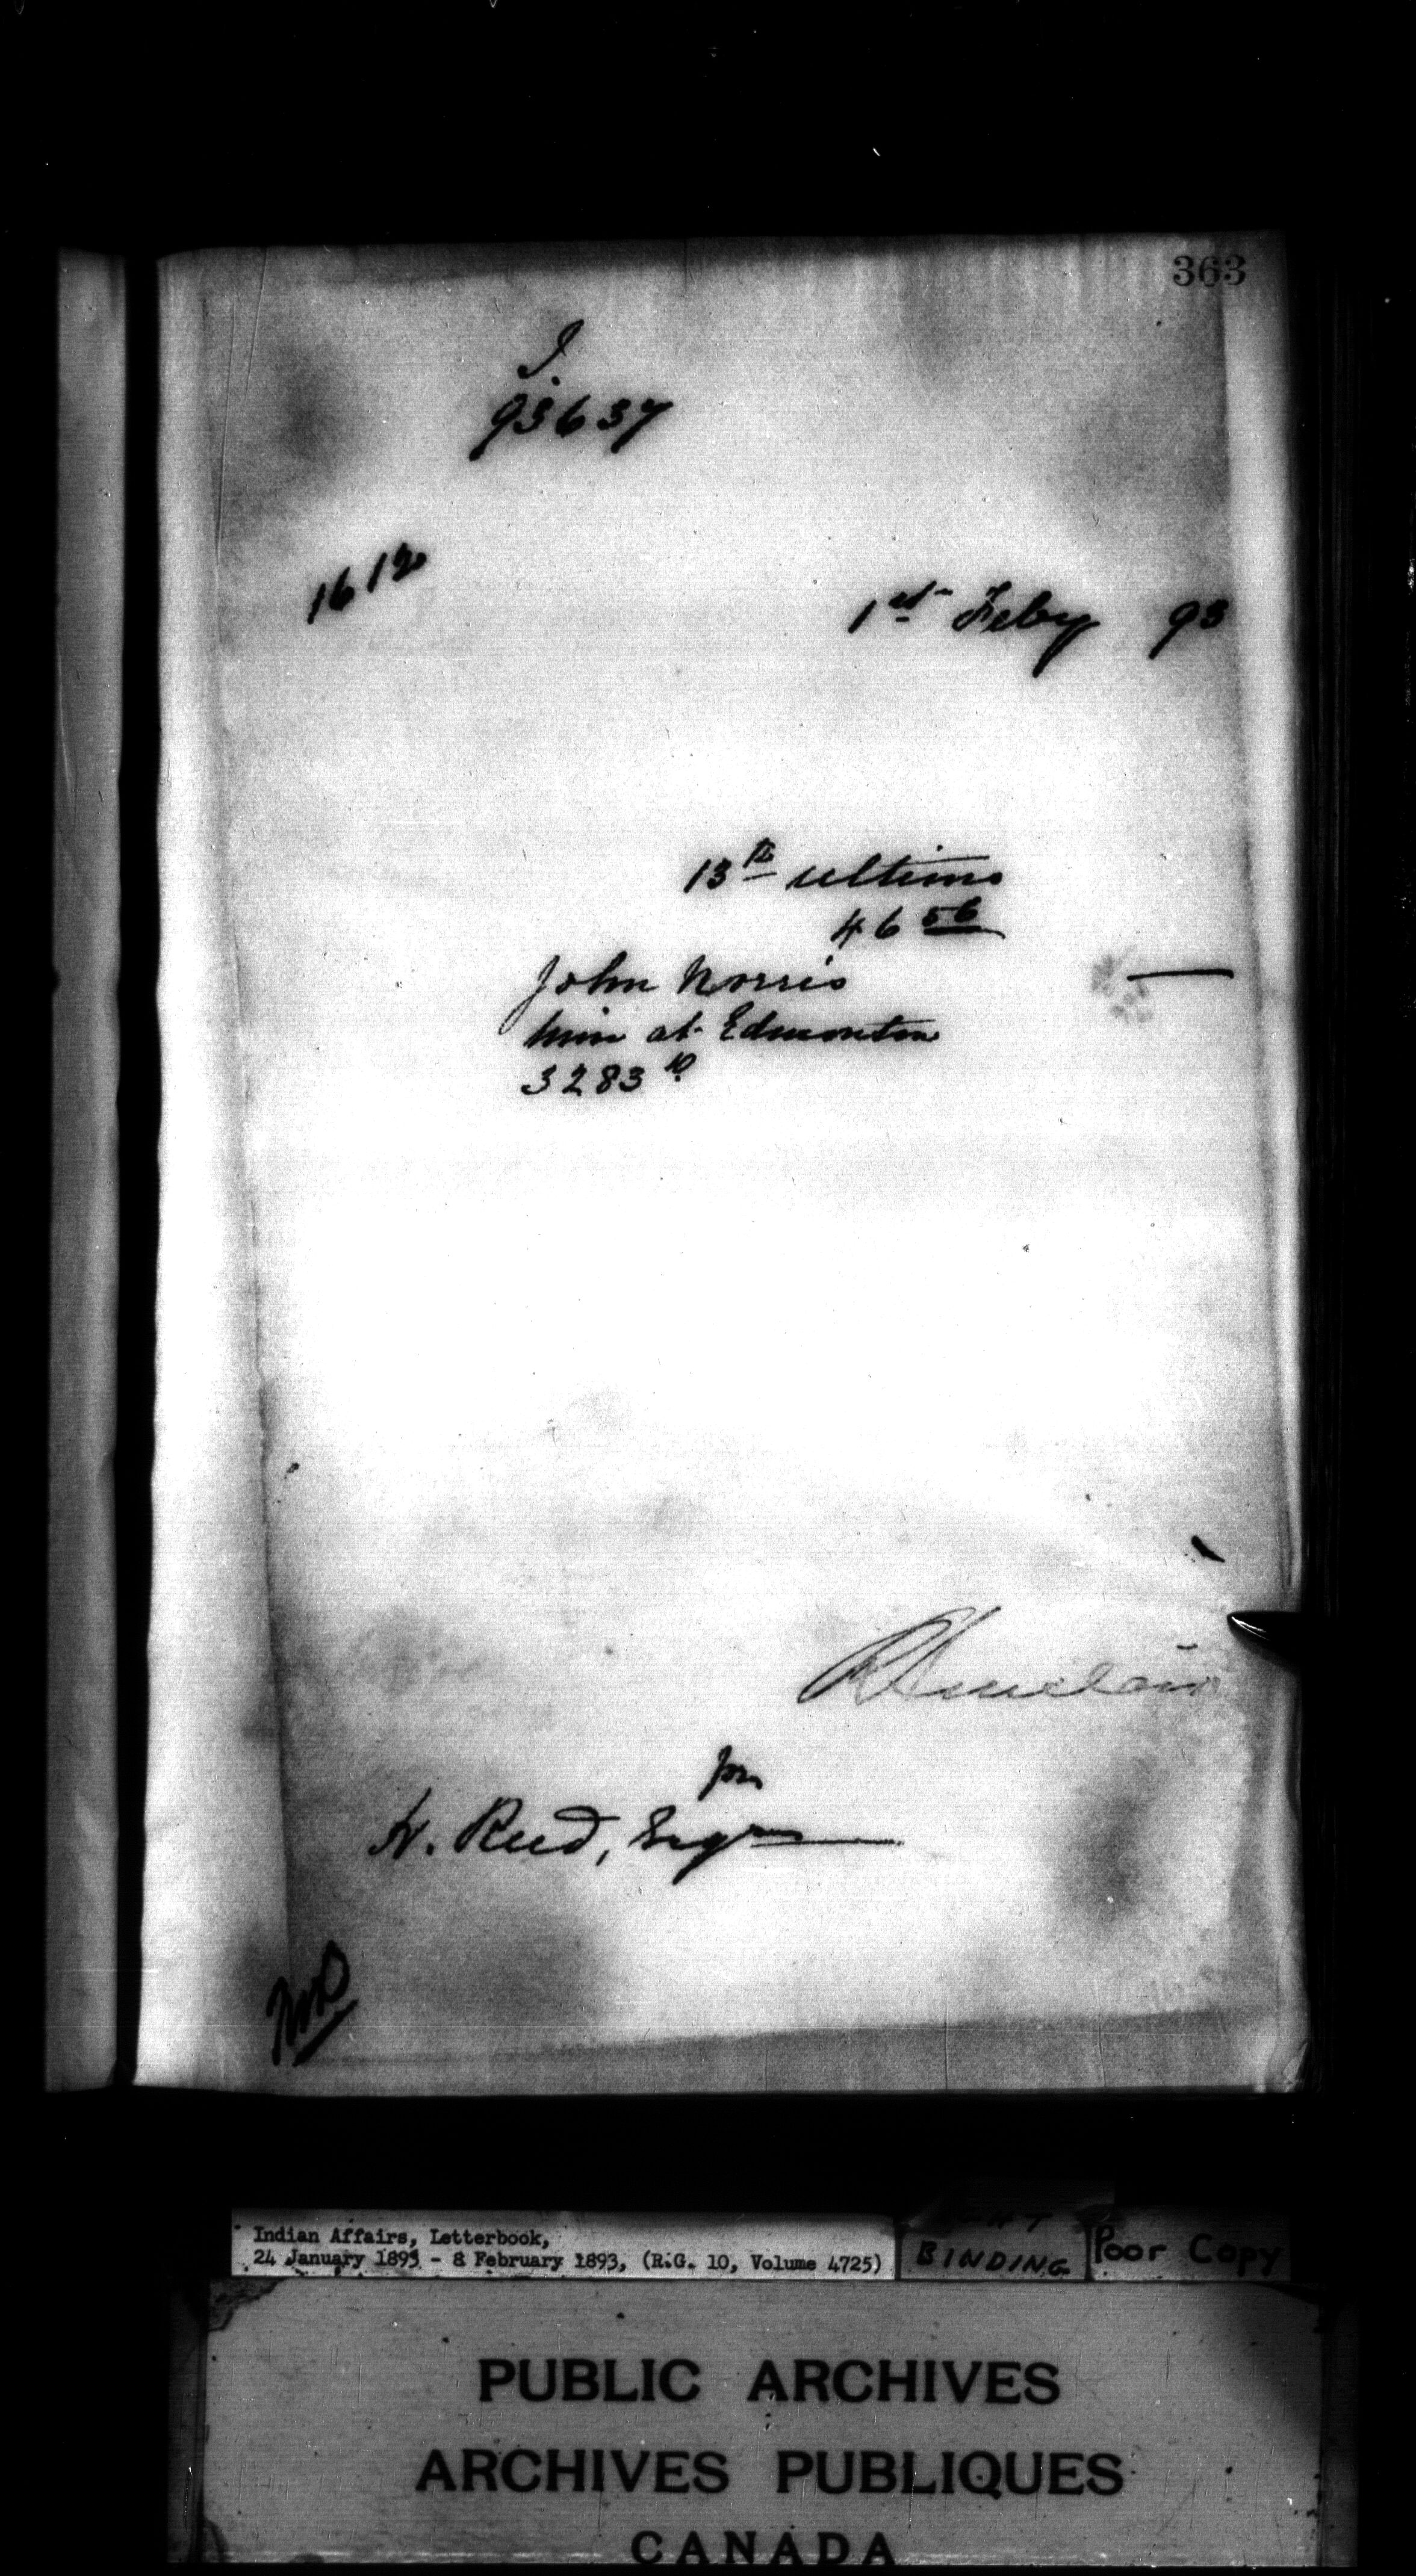 363
I.
93637
1612
1st Feby 93
13th ultimo
46 56
John Norris
him at Edmonton
3283 10
RSinclair
for
H. Reed, Esqre
Indian Affairs, Letterbook,
24 January 1893 - 8 February 1893, (R.G. 10, Volume 4725)
BINDING
Poor Copy
PUBLIC ARCHIVES
ARCHIVES PUBLIQUES
CANADA